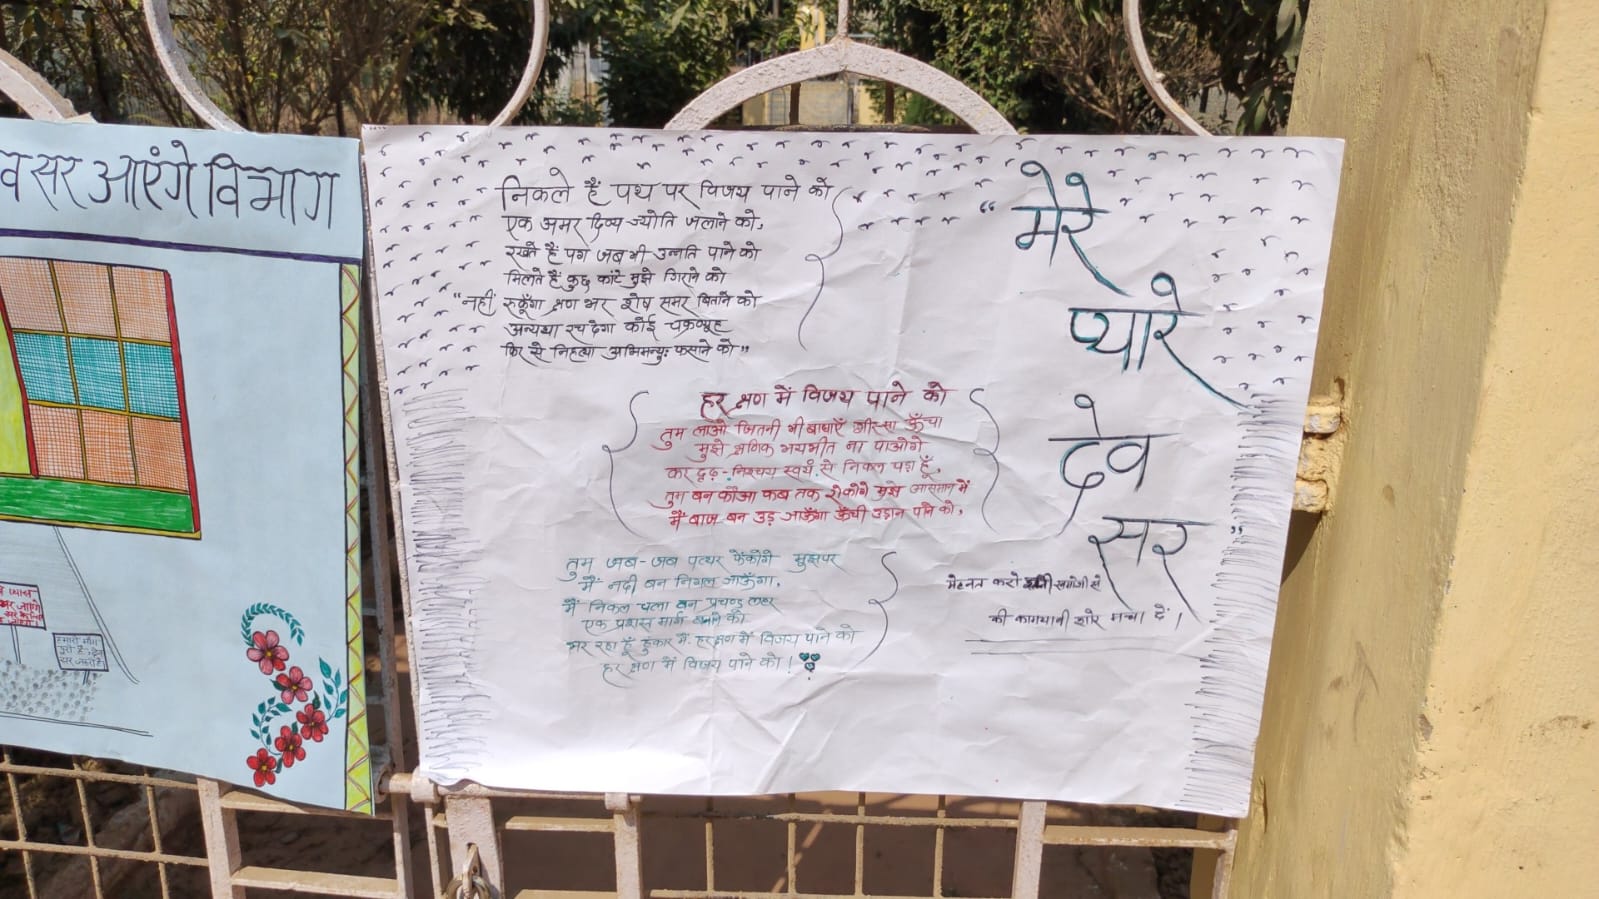 व सर आएंगे विभाग
निकले हैं पथ पर विजय पाने को
एक अमर दिव्य ज्योति जलाने को,
रखते हैं पग जब भी उन्नति पाने को
मिलते हैं कुछ कांटे मुझे गिराने को
"नहीं रुकूँगा क्षण भर शेष समर बिताने को
अन्यथा रच देगा कोई चक्रव्यूह
फिर से निहत्था अभिमन्यु: फसाने को"
हर क्षण में विजय पाने को
तुम लाओ जितनी भी बाधाएँ ऊँचा
मुझे क्षणिक भयभीत ना पाओगे
कर दृढ़-निश्चय स्वयं से निकल पड़ा हूँ,
तुम बन कौआ कब तक रोकोगे मुझे आसमान में
मैं बाज बन उड़ जाऊँगा ऊँची उड़ान पाने को,
तुम जब-जब पत्थर फेंकोगे मुझपर
मैं नदी बन निगल जाऊँगा,
मैं निकल चला बन प्रचण्ड लहर
एक प्रशस्त मार्ग बनाने को
भर रहा हूँ हुंकार मैं हर क्षण में विजय पाने को
हर क्षण में विजय पाने को!
"मेरे
प्यारे
देव
सर"
मेहनत करो खामोशी से
की कामयाबी शोर मचा दें।
हमारी माँग
पूरी है, देव
सर